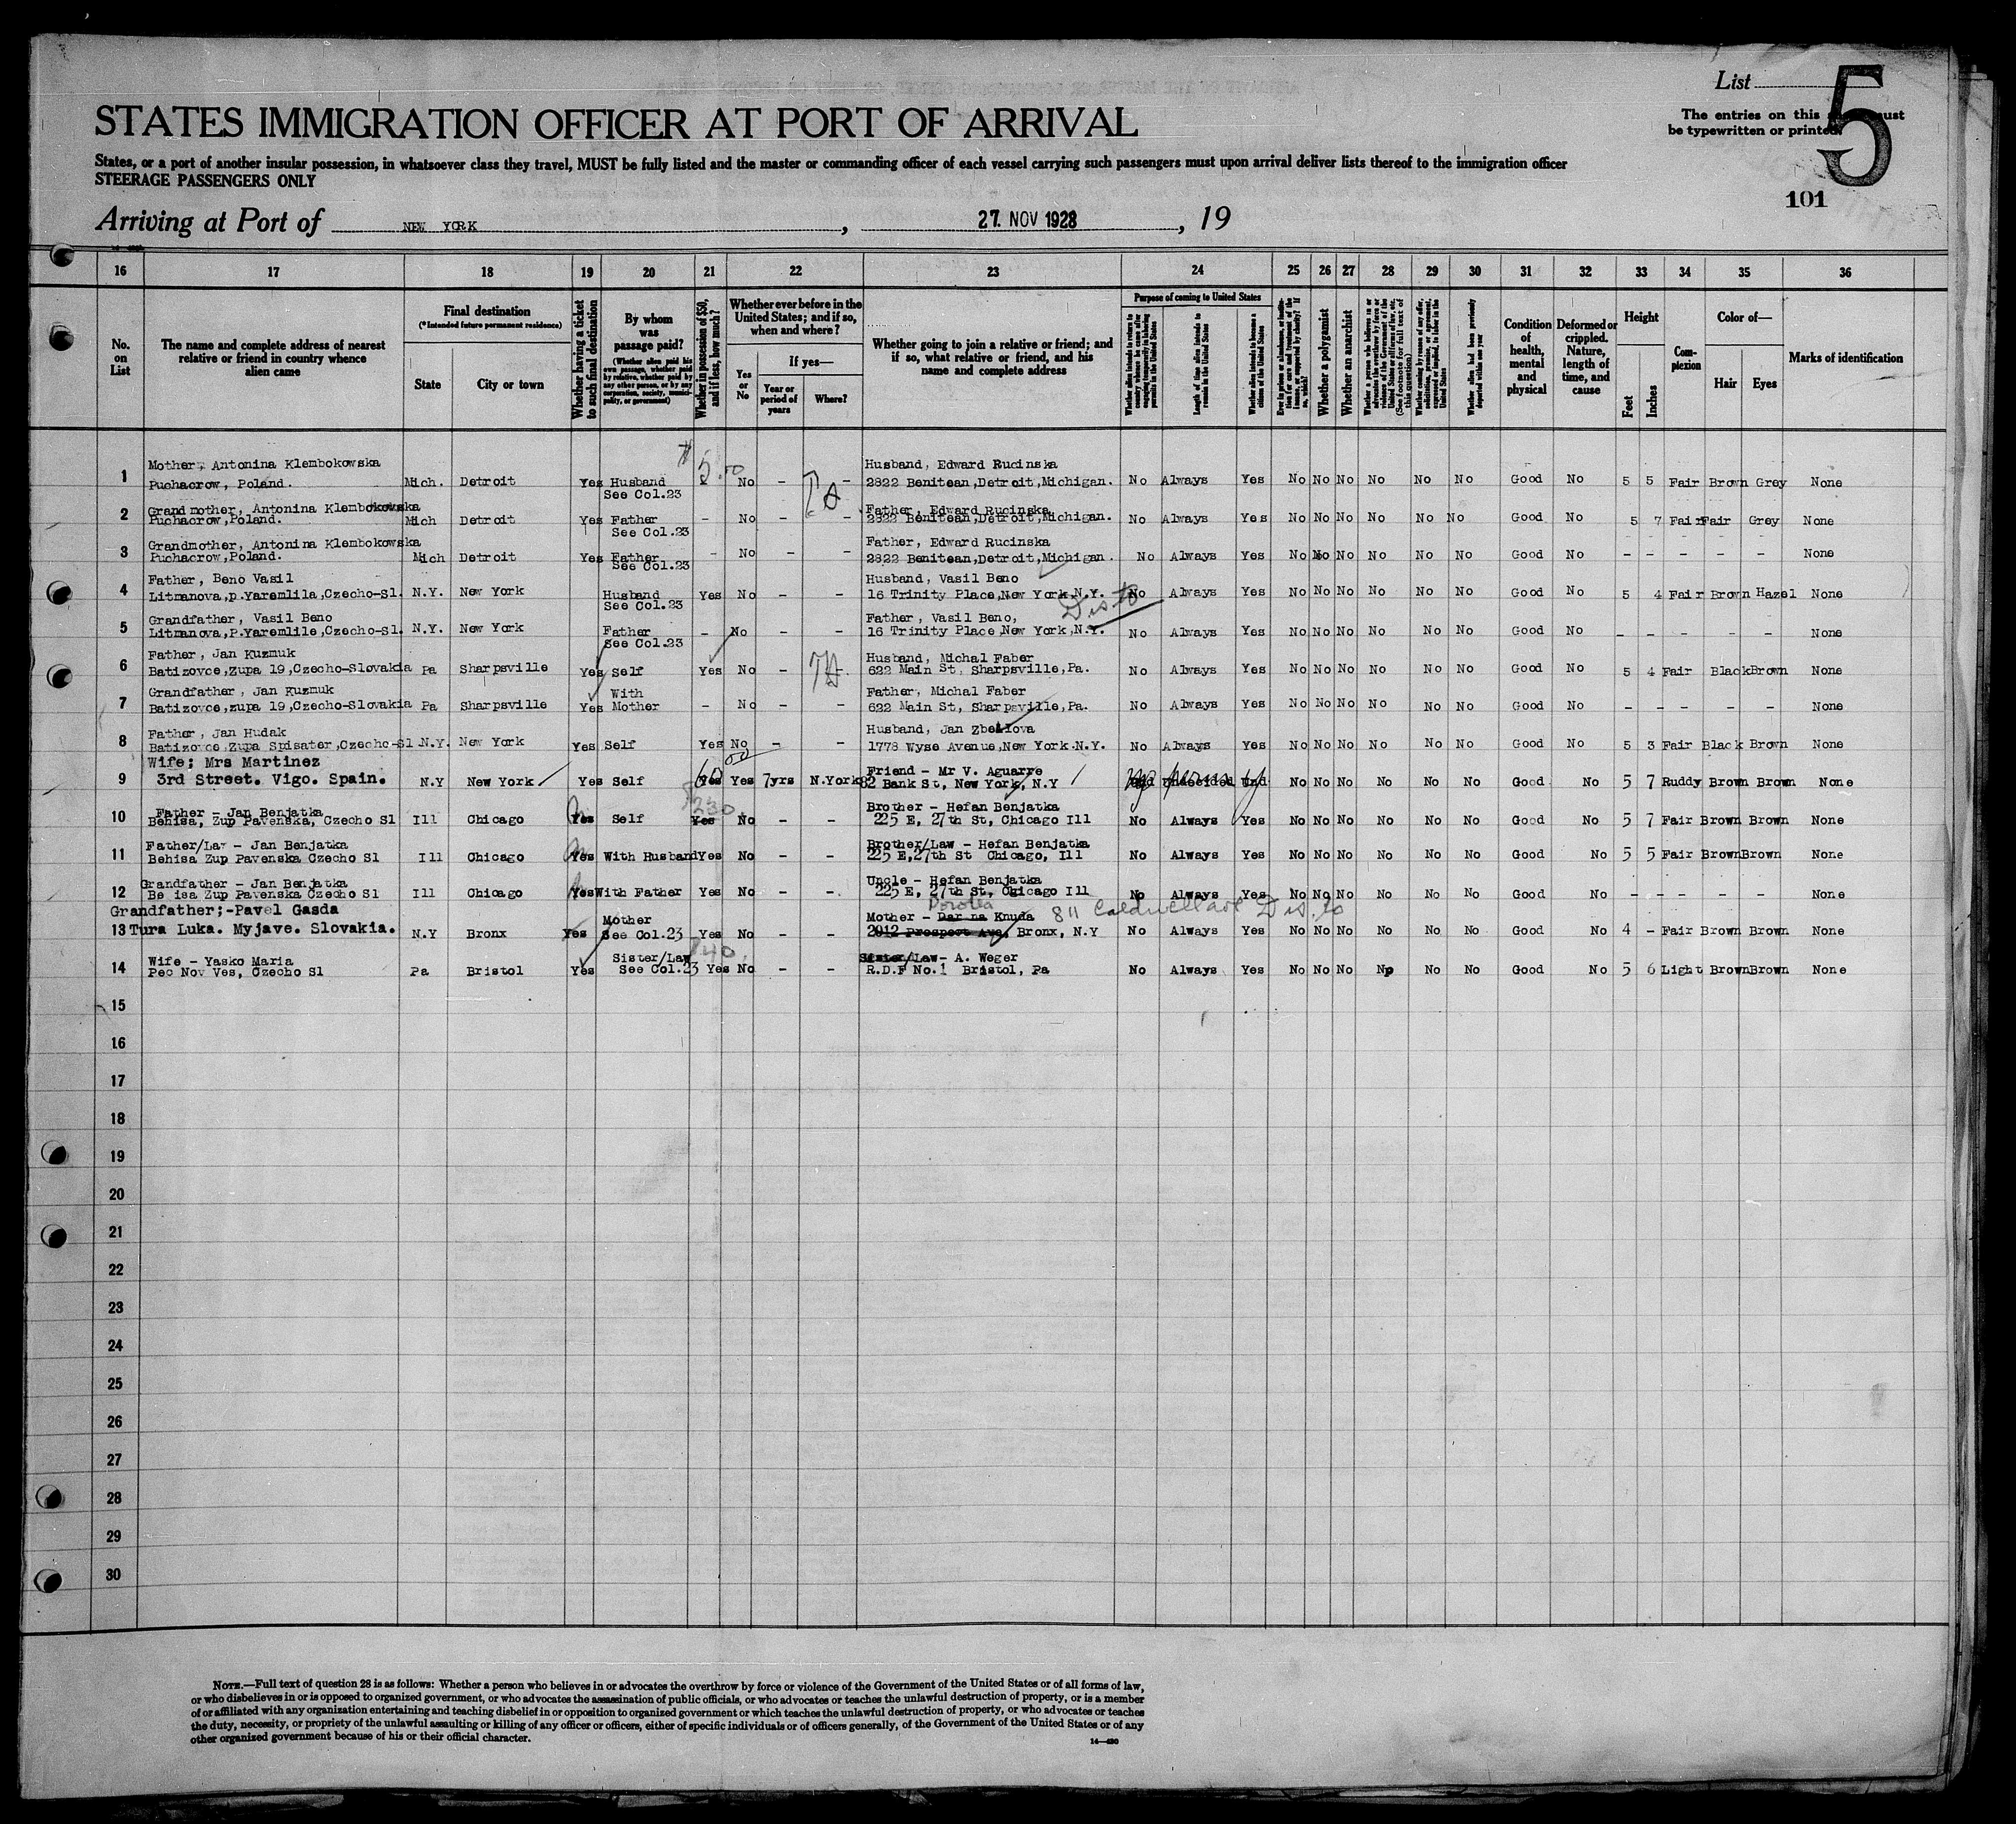 List 5
The entries on this must
be typewritten or printed.
101
STATES IMMIGRATION OFFICER AT PORT OF ARRIVAL
States, or a port of another insular possession, in whatsoever class they travel, MUST be fully listed and the master or commanding officer of each vessel carrying such passengers must upon arrival deliver lists thereof to the immigration officer
STEERAGE PASSENGERS ONLY
Arriving at Port of NEW YORK, 27. NOV 1928, 19
16 17 18 19 20 21 22 23 24 25 26 27 28 29 30 31 32 33 34 35 36
No. on List
The name and complete address of nearest relative or friend in country whence alien came
Final destination
(*Intended future permanent residence)
State
City or town
Whether having a ticket to such final destination
By whom was passage paid?
(Whether alien paid his own passage, whether paid by relative, whether paid by any other person, or by any corporation, society, municipality, or government)
Whether in possession of $50, and if less, how much?
Whether ever before in the United States; and if so, when and where?
Yes or No
If yes—
Year or period of years
Where?
Whether going to join a relative or friend; and if so, what relative or friend, and his name and complete address
Purpose of coming to United States
Whether alien intends to return to country whence he came after engaging temporarily in laboring pursuits in the United States
Length of time alien intends to remain in the United States
Whether alien intends to become a citizen of the United States
Ever in prison or almshouse, or institution for care and treatment of the insane, or supported by charity? If so, which?
Whether a polygamist
Whether an anarchist
Whether a person who believes in or advocates the overthrow by force or violence of the Government of the United States or all forms of law, etc. (See footnote for full text of this question)
Whether coming by reason of any offer, solicitation, promise, or agreement, expressed or implied, to labor in the United States
Whether alien had been previously deported within one year
Condition of health, mental and physical
Deformed or crippled. Nature, length of time, and cause
Height
Feet
Inches
Complexion
Color of—
Hair
Eyes
Marks of identification
Mother, Antonina Klembokowska $5.00 Husband, Edward Rucinska
1 Puchacrow, Poland. Mich. Detroit Yes Husband - No - - 2822 Benitean,Detroit,Michigan. No Always Yes No No No No No No Good No 5 5 Fair Brown Grey None
See Col.23
Grand mother, Antonina Klembokowska Father, Edward Rucinska
2 Puchacrow,Poland. Mich Detroit Yes Father - No - 2822 Benitean,Detroit,Michigan. No Always Yes No No No No No No Good No 5 7 Fair Fair Grey None
See Col.23
Grandmother, Antonina Klembokowska Father, Edward Rucinska
3 Puchacrow,Poland. Mich Detroit Yes Father - No - - 2822 Benitean,Detroit,Michigan. No Always Yes No No No No No No Good No - - - - - None
See Col.23
Father, Beno Vasil Husband, Vasil Beno
4 Litmanova,p.Yaremlila,Czecho-Sl. N.Y. New York Husband Yes No - - 16 Trinity Place,New York,N.Y. No Always Yes No No No No No No Good No 5 4 Fair Brown Hazel None
See Col.23 Dis to
Grandfather, Vasil Beno Father, Vasil Beno,
5 Litmanova,P.Yaremlile,Czecho-Sl. N.Y. New York Father - No - - 16 Trinity Place,New York,N.Y. No Always Yes No No No No No No Good No - - - - - None
See Col.23
Father, Jan Kuzmuk Husband, Michal Faber
6 Batizovce,Zupa 19,Czecho-Slovakia Pa Sharpsville Yes Self Yes No - 622 Main St, Sharpsville,Pa. No Always Yes No No No No No No Good No 5 4 Fair Black Brown None
Grandfather, Jan Kuzmuk With Father, Michal Faber
7 Batizovce,zupa 19,Czecho-Slovakia Pa Sharpsville Yes Mother - No - - 622 Main St, Sharpsville,Pa. No Always Yes No No No No No No Good No - - - - - None
Father, Jan Hudak Husband, Jan
8 Batizovce,Zupa Spisater,Czecho-Sl N.Y. New York Yes Self Yes No - - 1778 Wyse Avenue,New York.N.Y. No Always Yes No No No No No No Good No 5 3 Fair Black Brown None
Wife; Mrs Martinez Friend - Mr V. Aguarre
9 3rd Street. Vigo. Spain. N.Y New York Yes Self Yes Yes 7yrs N.York 82 Bank St, New York, N.Y Undecided Und No No No No No No Good No 5 7 Ruddy Brown Brown None
Father - Jan Benjatka 230 Brother - Hefan Benjatka
10 Behisa, Zup Pavenska, Czecho Sl Ill Chicago Yes Self Yes No - - 225 E, 27th St, Chicago Ill No Always Yes No No No No No No Good No 5 7 Fair Brown Brown None
Father/Law - Jan Benjatka Brother/Law - Hefan Benjatka
11 Behisa Zup Pavenska Czecho Sl Ill Chicago Yes With Husband Yes No - - 225 E,27th St Chicago, Ill No Always Yes No No No No No No Good No 5 5 Fair Brown Brown None
Grandfather - Jan Benjatka Uncle - Hefan Benjatka
12 Be isa Zup Pavenska Czecho Sl Ill Chicago Yes With Father Yes No - - 225 E, 27th St, Chicago Ill No Always Yes No No No No No No Good No - - - - - None
Grandfather;-Pavel Gasda Mother Mother - Dar na Knuda Dorotea 811 Caldwell ave Dis. to
13 Tura Luka. Myjave. Slovakia. N.Y Bronx Yes See Col.23 Yes No - - 2012 Prospect Ave, Bronx, N.Y No Always Yes No No No No No No Good No 4 - Fair Brown Brown None
Wife - Yasko Maria Sister/Law 40 Sister/Law - A. Weger
14 Pec Nov Ves, Czecho Sl Pa Bristol Yes See Col.23 Yes No - - R.D.F No.1 Bristol, Pa No Always Yes No No No No No No Good No 5 6 Light Brown Brown None
15
16
17
18
19
20
21
22
23
24
25
26
27
28
29
30
NOTE.—Full text of question 28 is as follows: Whether a person who believes in or advocates the overthrow by force or violence of the Government of the United States or of all forms of law,
or who disbelieves in or is opposed to organized government, or who advocates the assassination of public officials, or who advocates or teaches the unlawful destruction of property, or is a member
of or affiliated with any organization entertaining and teaching disbelief in or opposition to organized government or which teaches the unlawful destruction of property, or who advocates or teaches
the duty, necessity, or propriety of the unlawful assaulting or killing of any officer or officers, either of specific individuals or of officers generally, of the Government of the United States or of any
other organized government because of his or their official character.
14—430